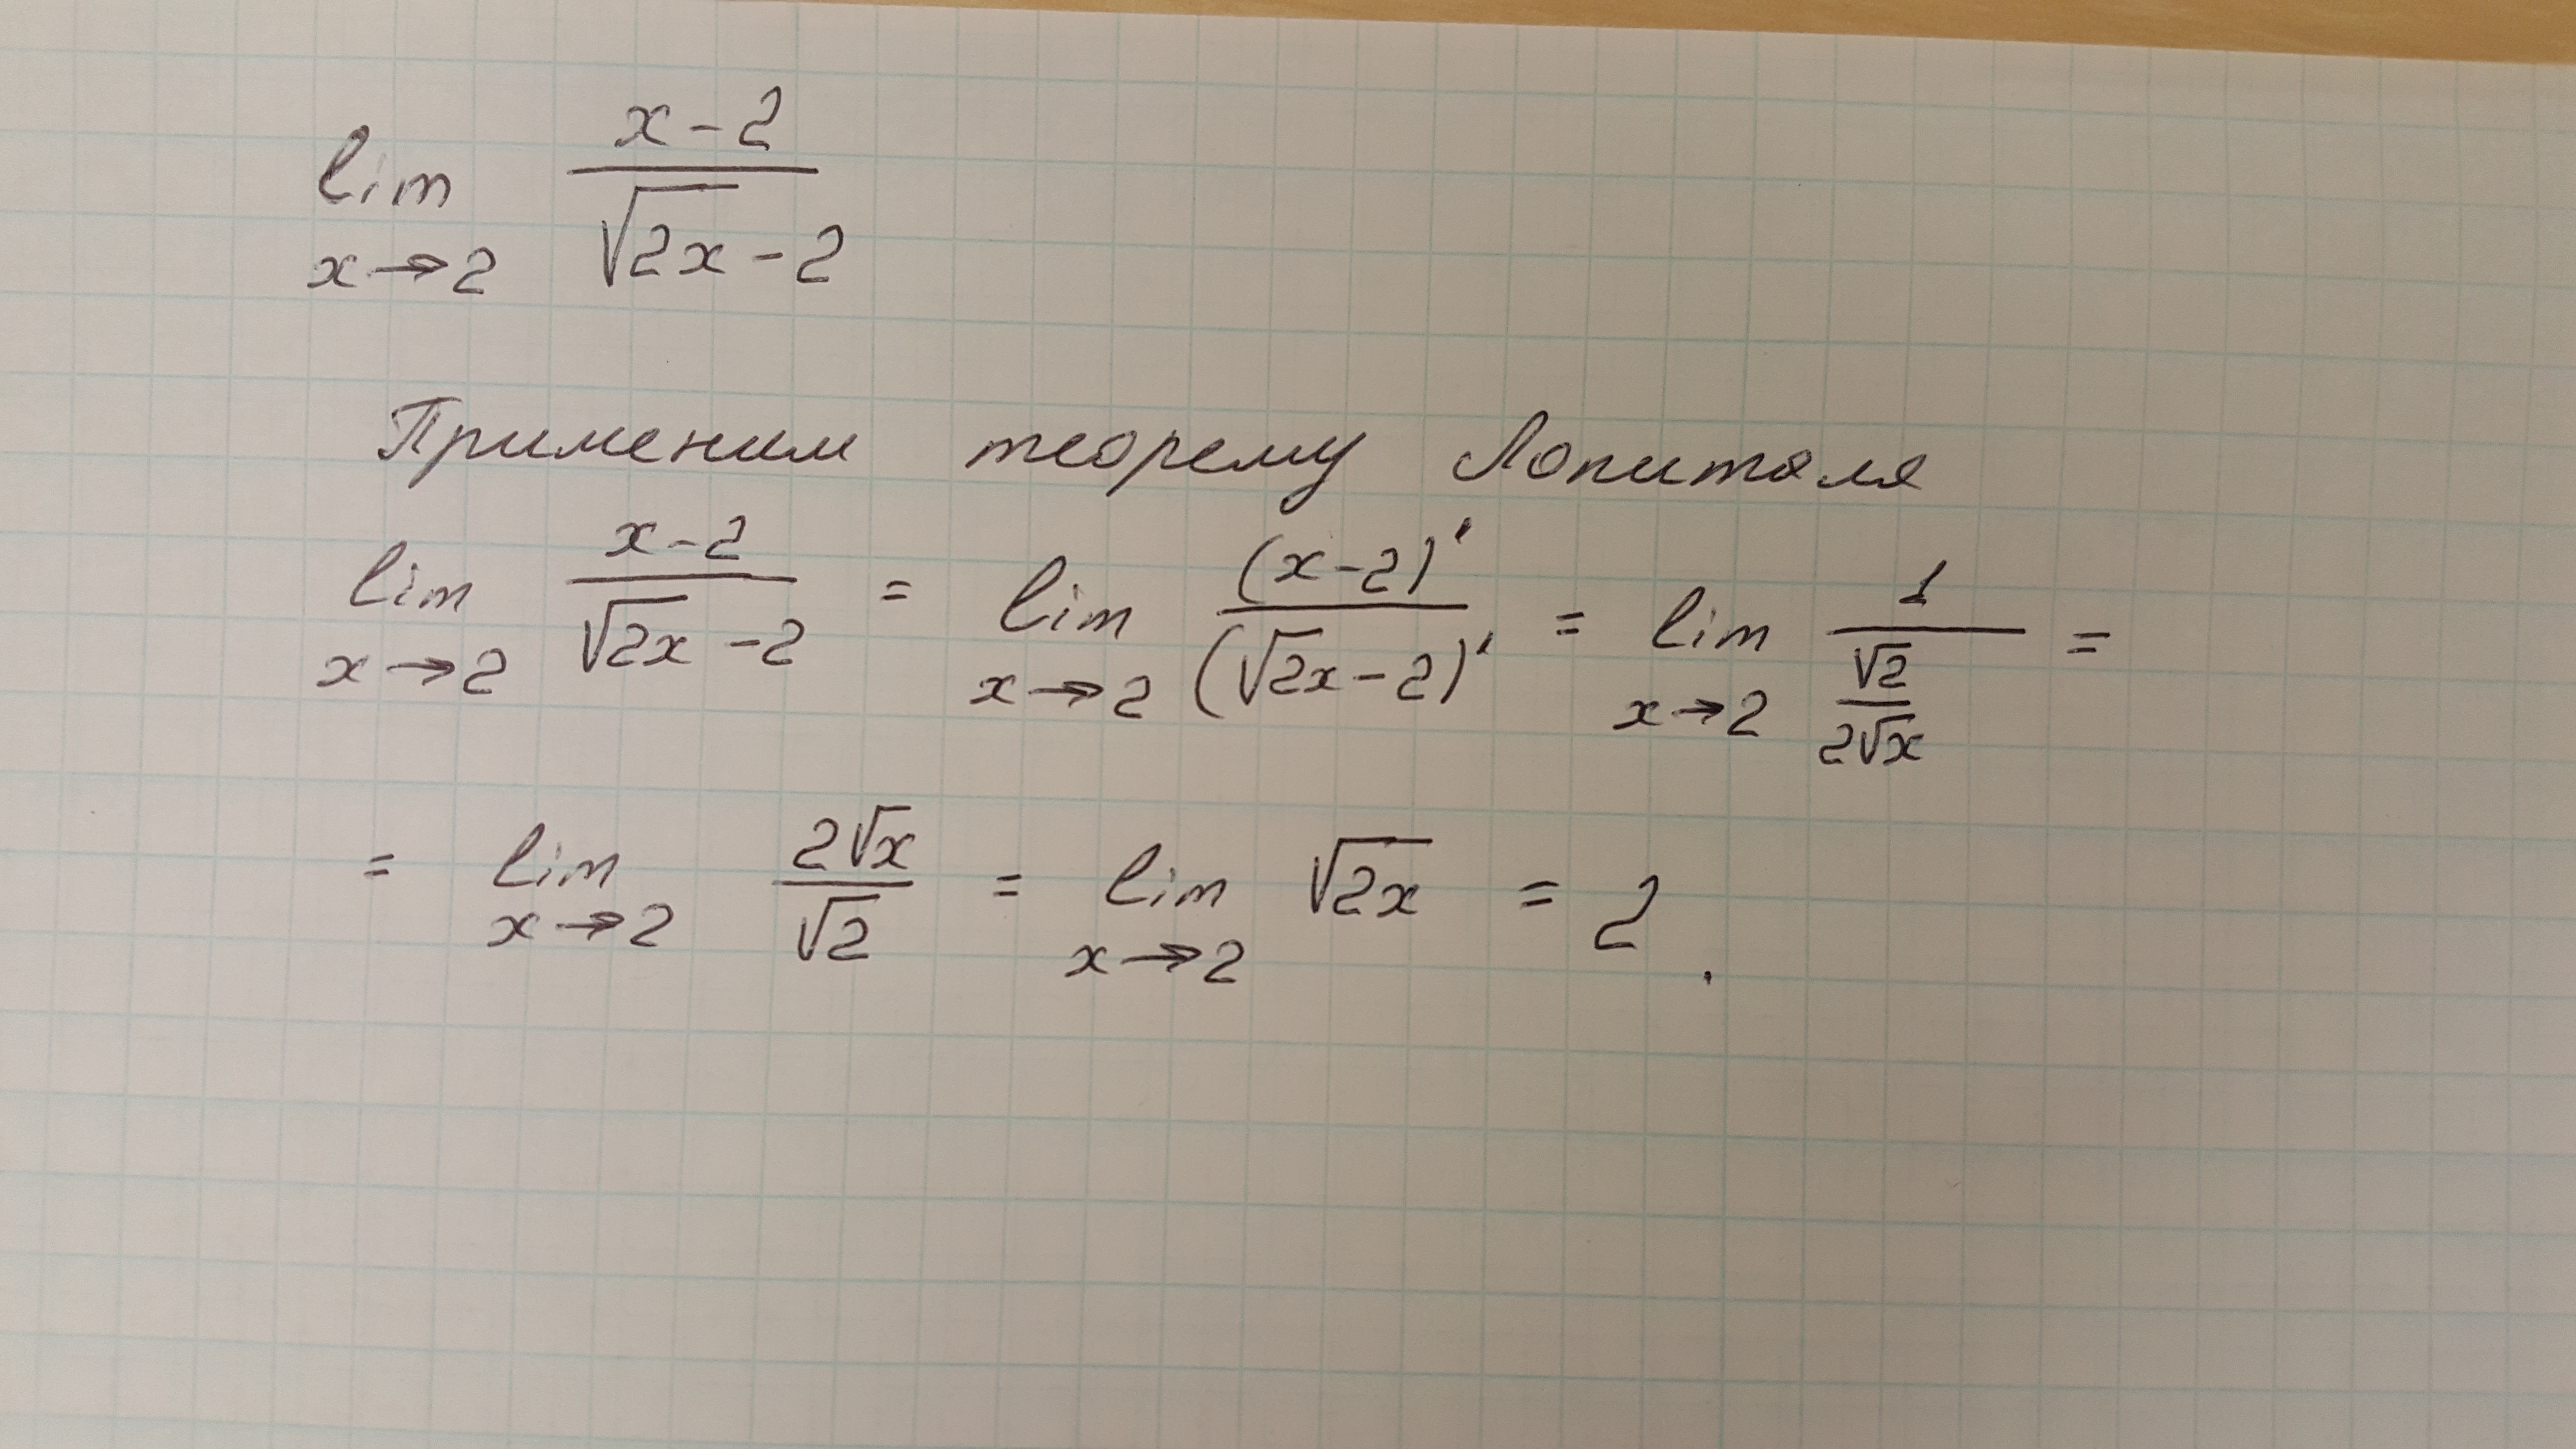 lim x→2 (x-2)/(√2x - 2)
Применим теорему Лопиталя
lim x→2 (x-2)/(√2x - 2) = lim x→2 (x-2)'/(√2x - 2)' = lim x→2 1/(√2/(2√x)) =
= lim x→2 2√x/√2 = lim x→2 √2x = 2.